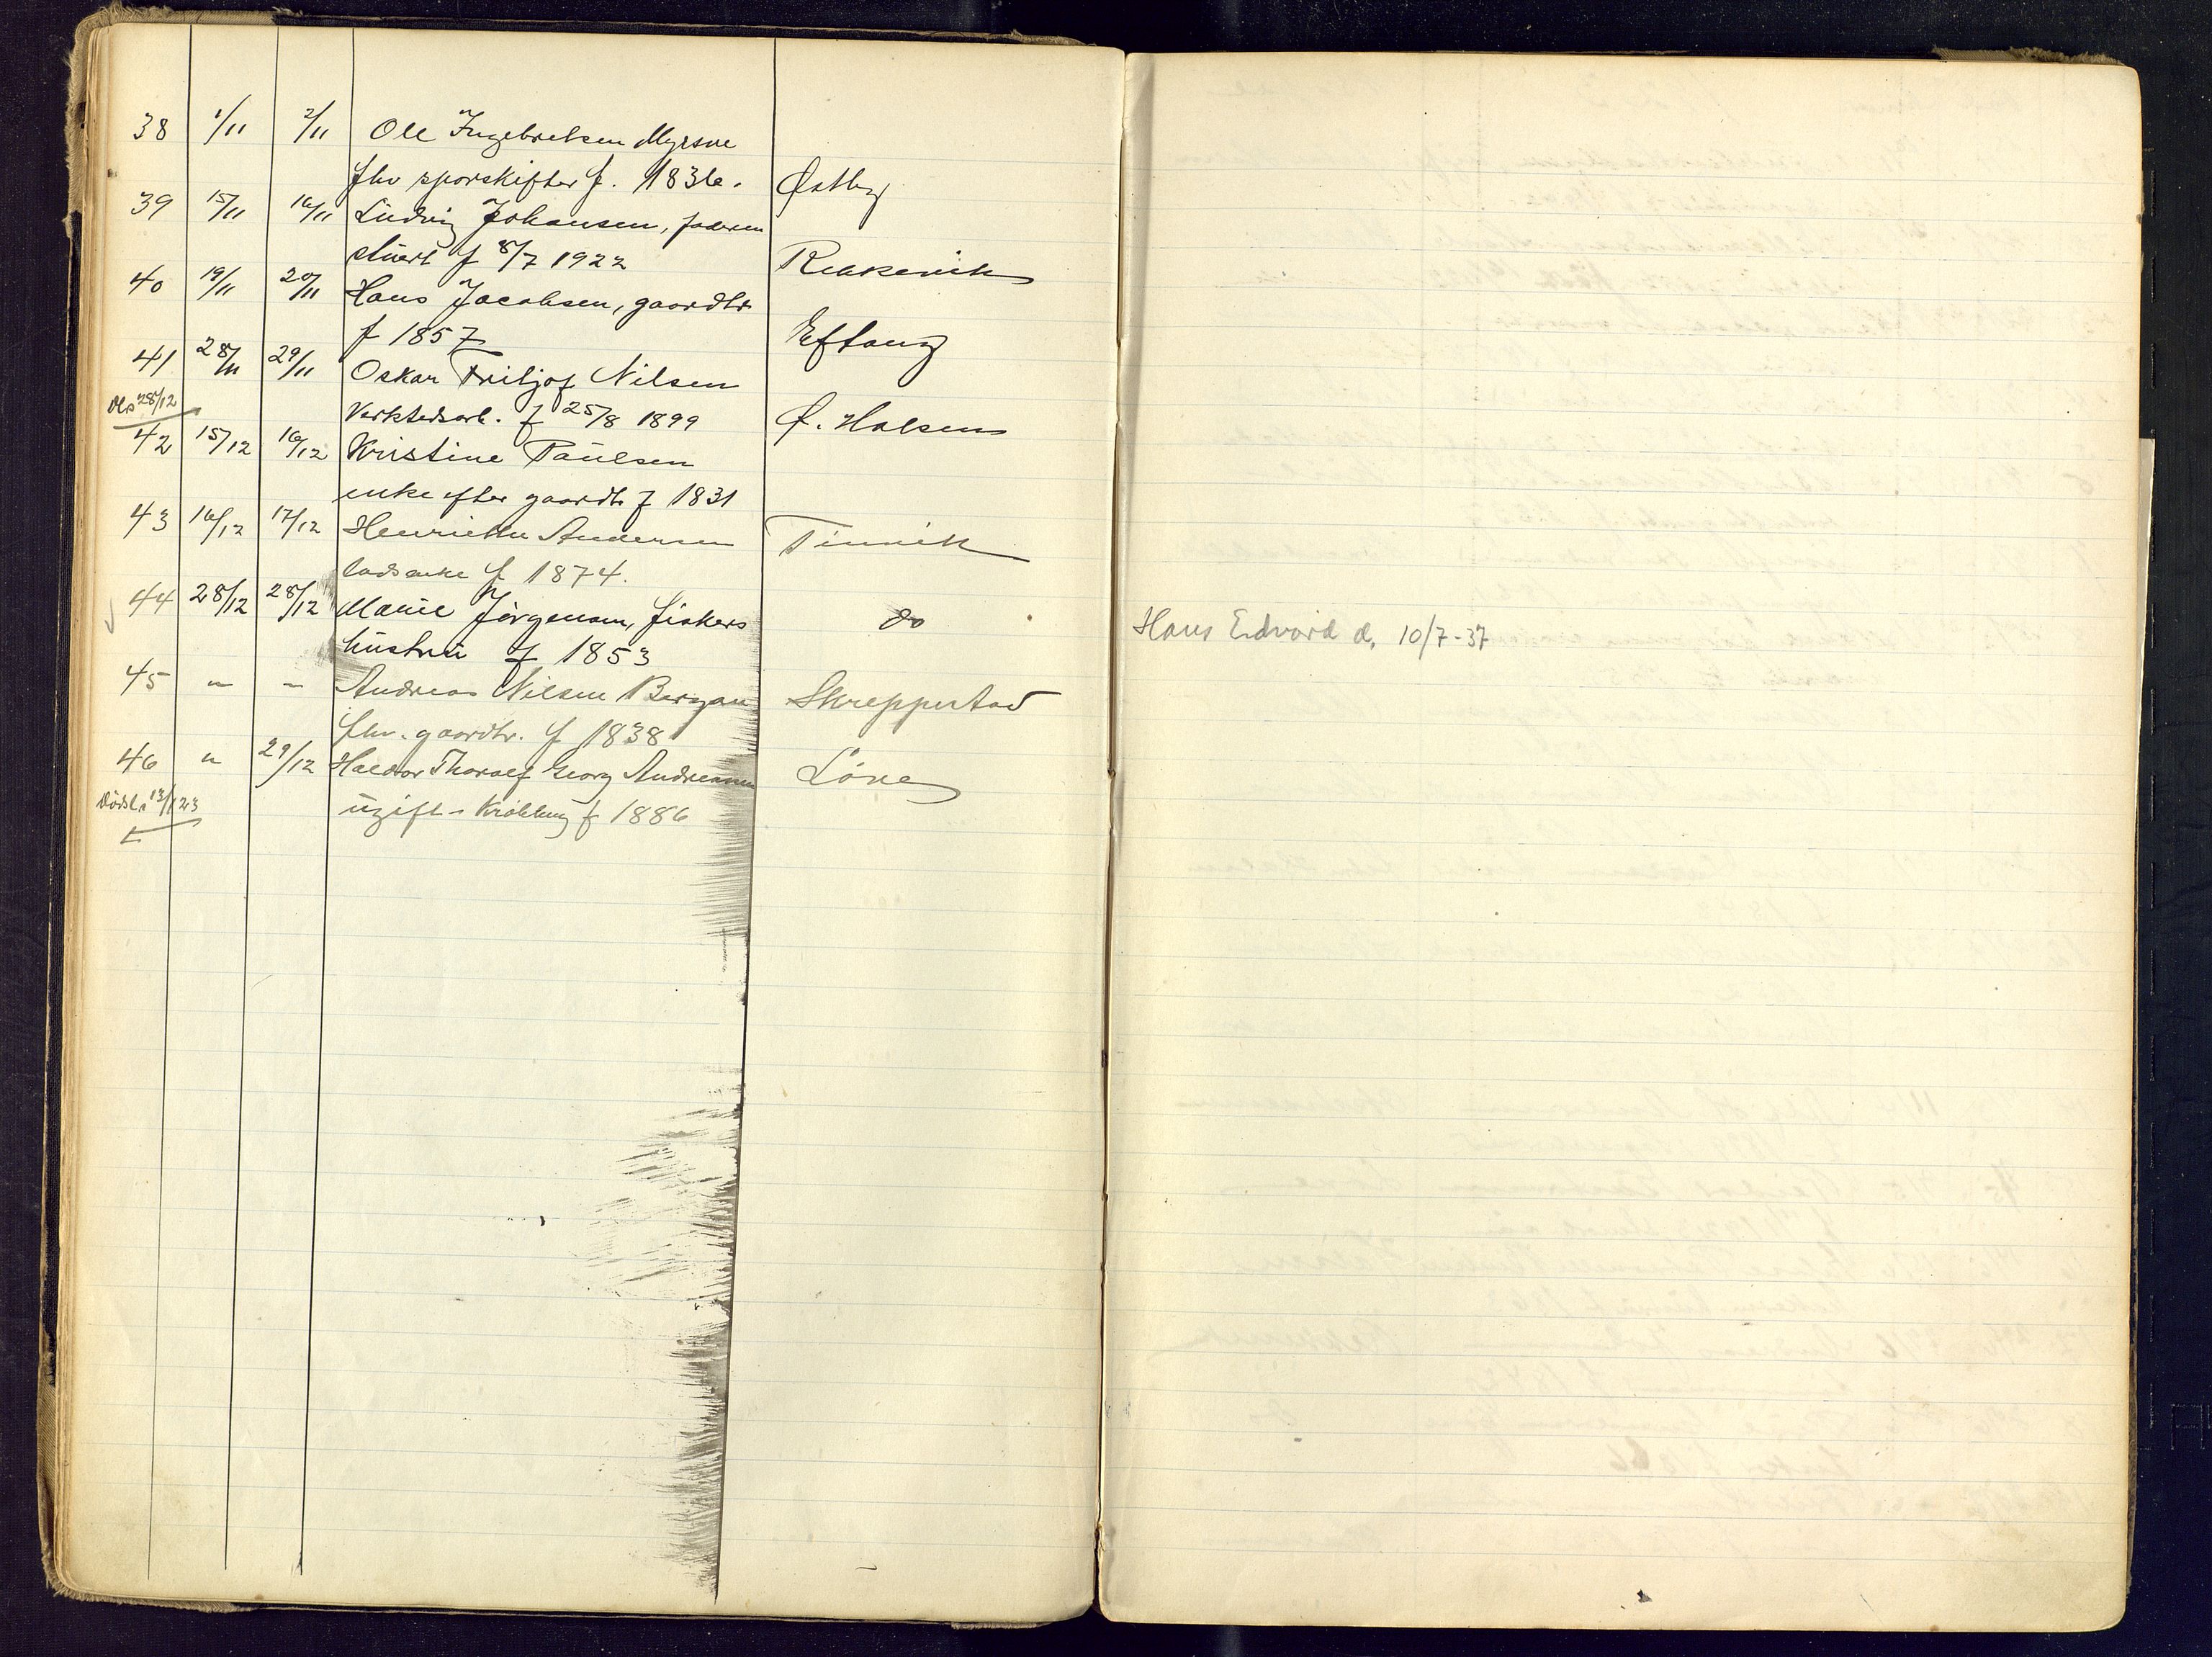 38 1/11 2/11 Ole Ingebretsen Myrene
fhv sporskifter f. 1836. Østby
39 15/11 16/11 Ludvig Johansen, faderen
stuert f 8/7 1922 Rekkevik
40 19/11 20/11 Hans Jacobsen, gaardbr
f 1857 Eftang
41 28/11 29/11 Oskar Fritjof Nilsen
Dls 28/12
Verkstedsarb. f 25/8 1899 Ø. Halsen
42 15/12 16/12 Kristine Paulsen
enke efter gaardb f 1831
43 16/12 17/12 Henriette Andersen Tinvik
lods enke f 1874.
44 28/12 28/12 Marie Jörgensen, fiskers do
hustru f 1853
45 " " Andreas Nilsen Bergan Skreppestad
fhv. gaardbr. f 1838
46 " 29/12 Haldor Thoralf Georg Andreassen Löve
Dødsl. 13/1 23
ugift - f 1886
Hans Edvard d. 10/7-37